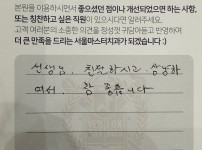 본원을 이용하시면서 좋으셨던 점이나 개선되었으면 하는 사항,
또는 칭찬하고 싶은 직원이 있으시다면 알려주세요.
고객 여러분의 소중한 의견을 경청하고 귀담아듣고 반영하여
더 큰 만족을 드리는 서울마스터치과가 되겠습니다 :)
선생님, 친절하시고 상냥하
여서, 참 좋습니다